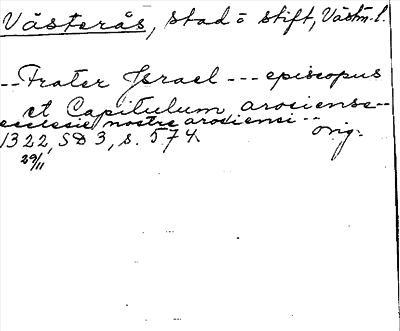 Västerås, stad o stift, Västm. l.
-- Frater Israel --- episcopus
et Capitulum arosiense --
ecclesie nostre arosiensi -- orig.
1322, SD 3, s. 574
29/11